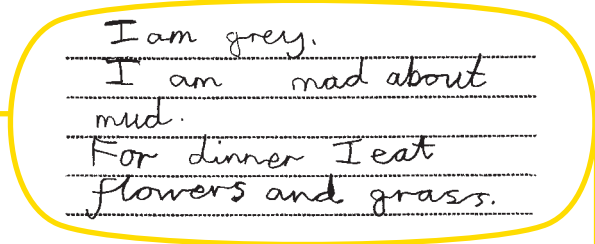 I am grey.
I am mad about
mud.
For dinner I eat
flowers and grass.